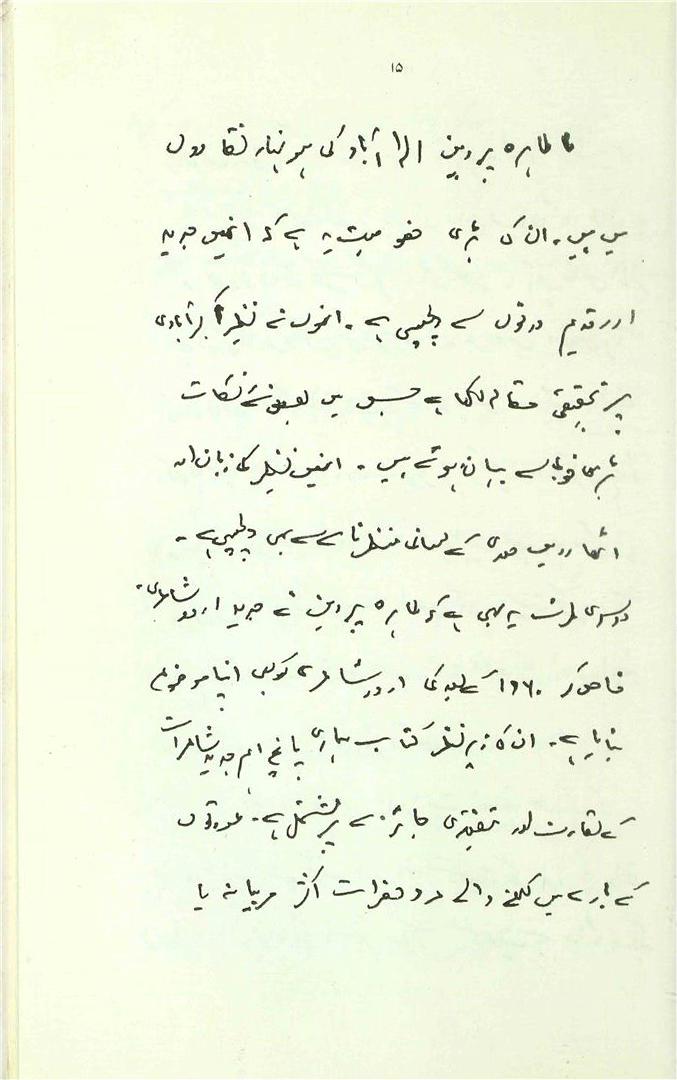 ۱۵
طاہرہ پروین الہ آباد کی ہونہار نقادوں
میں ہیں۔ ان کی بڑی خصوصیت یہ ہے کہ انھیں جدید
اور قدیم دونوں سے دلچسپی ہے۔ انھوں نے نظیر اکبرآبادی
پر تحقیقی مقالہ لکھا ہے جس میں بعض نئے نکات
بڑی خوبی سے بیان ہوئے ہیں۔ انھیں نظیر کی زبان اور
اٹھارویں صدی کے لسانی منظرنامے سے بھی دلچسپی ہے۔
دوسری طرف یہ بھی ہے کہ طاہرہ پروین نے جدید اردو شاعری،
خاص کر ۱۹۶۰ کے بعد کی اردو شاعری کو بھی اپنا موضوع
بنایا ہے۔ ان کی زیر نظر کتاب ہماری پانچ اہم جدید شاعرات
کے تعارف اور تنقیدی جائزے پر مشتمل ہے۔ عورتوں
کے بارے میں لکھنے والے مرد حضرات اکثر مربیانہ یا